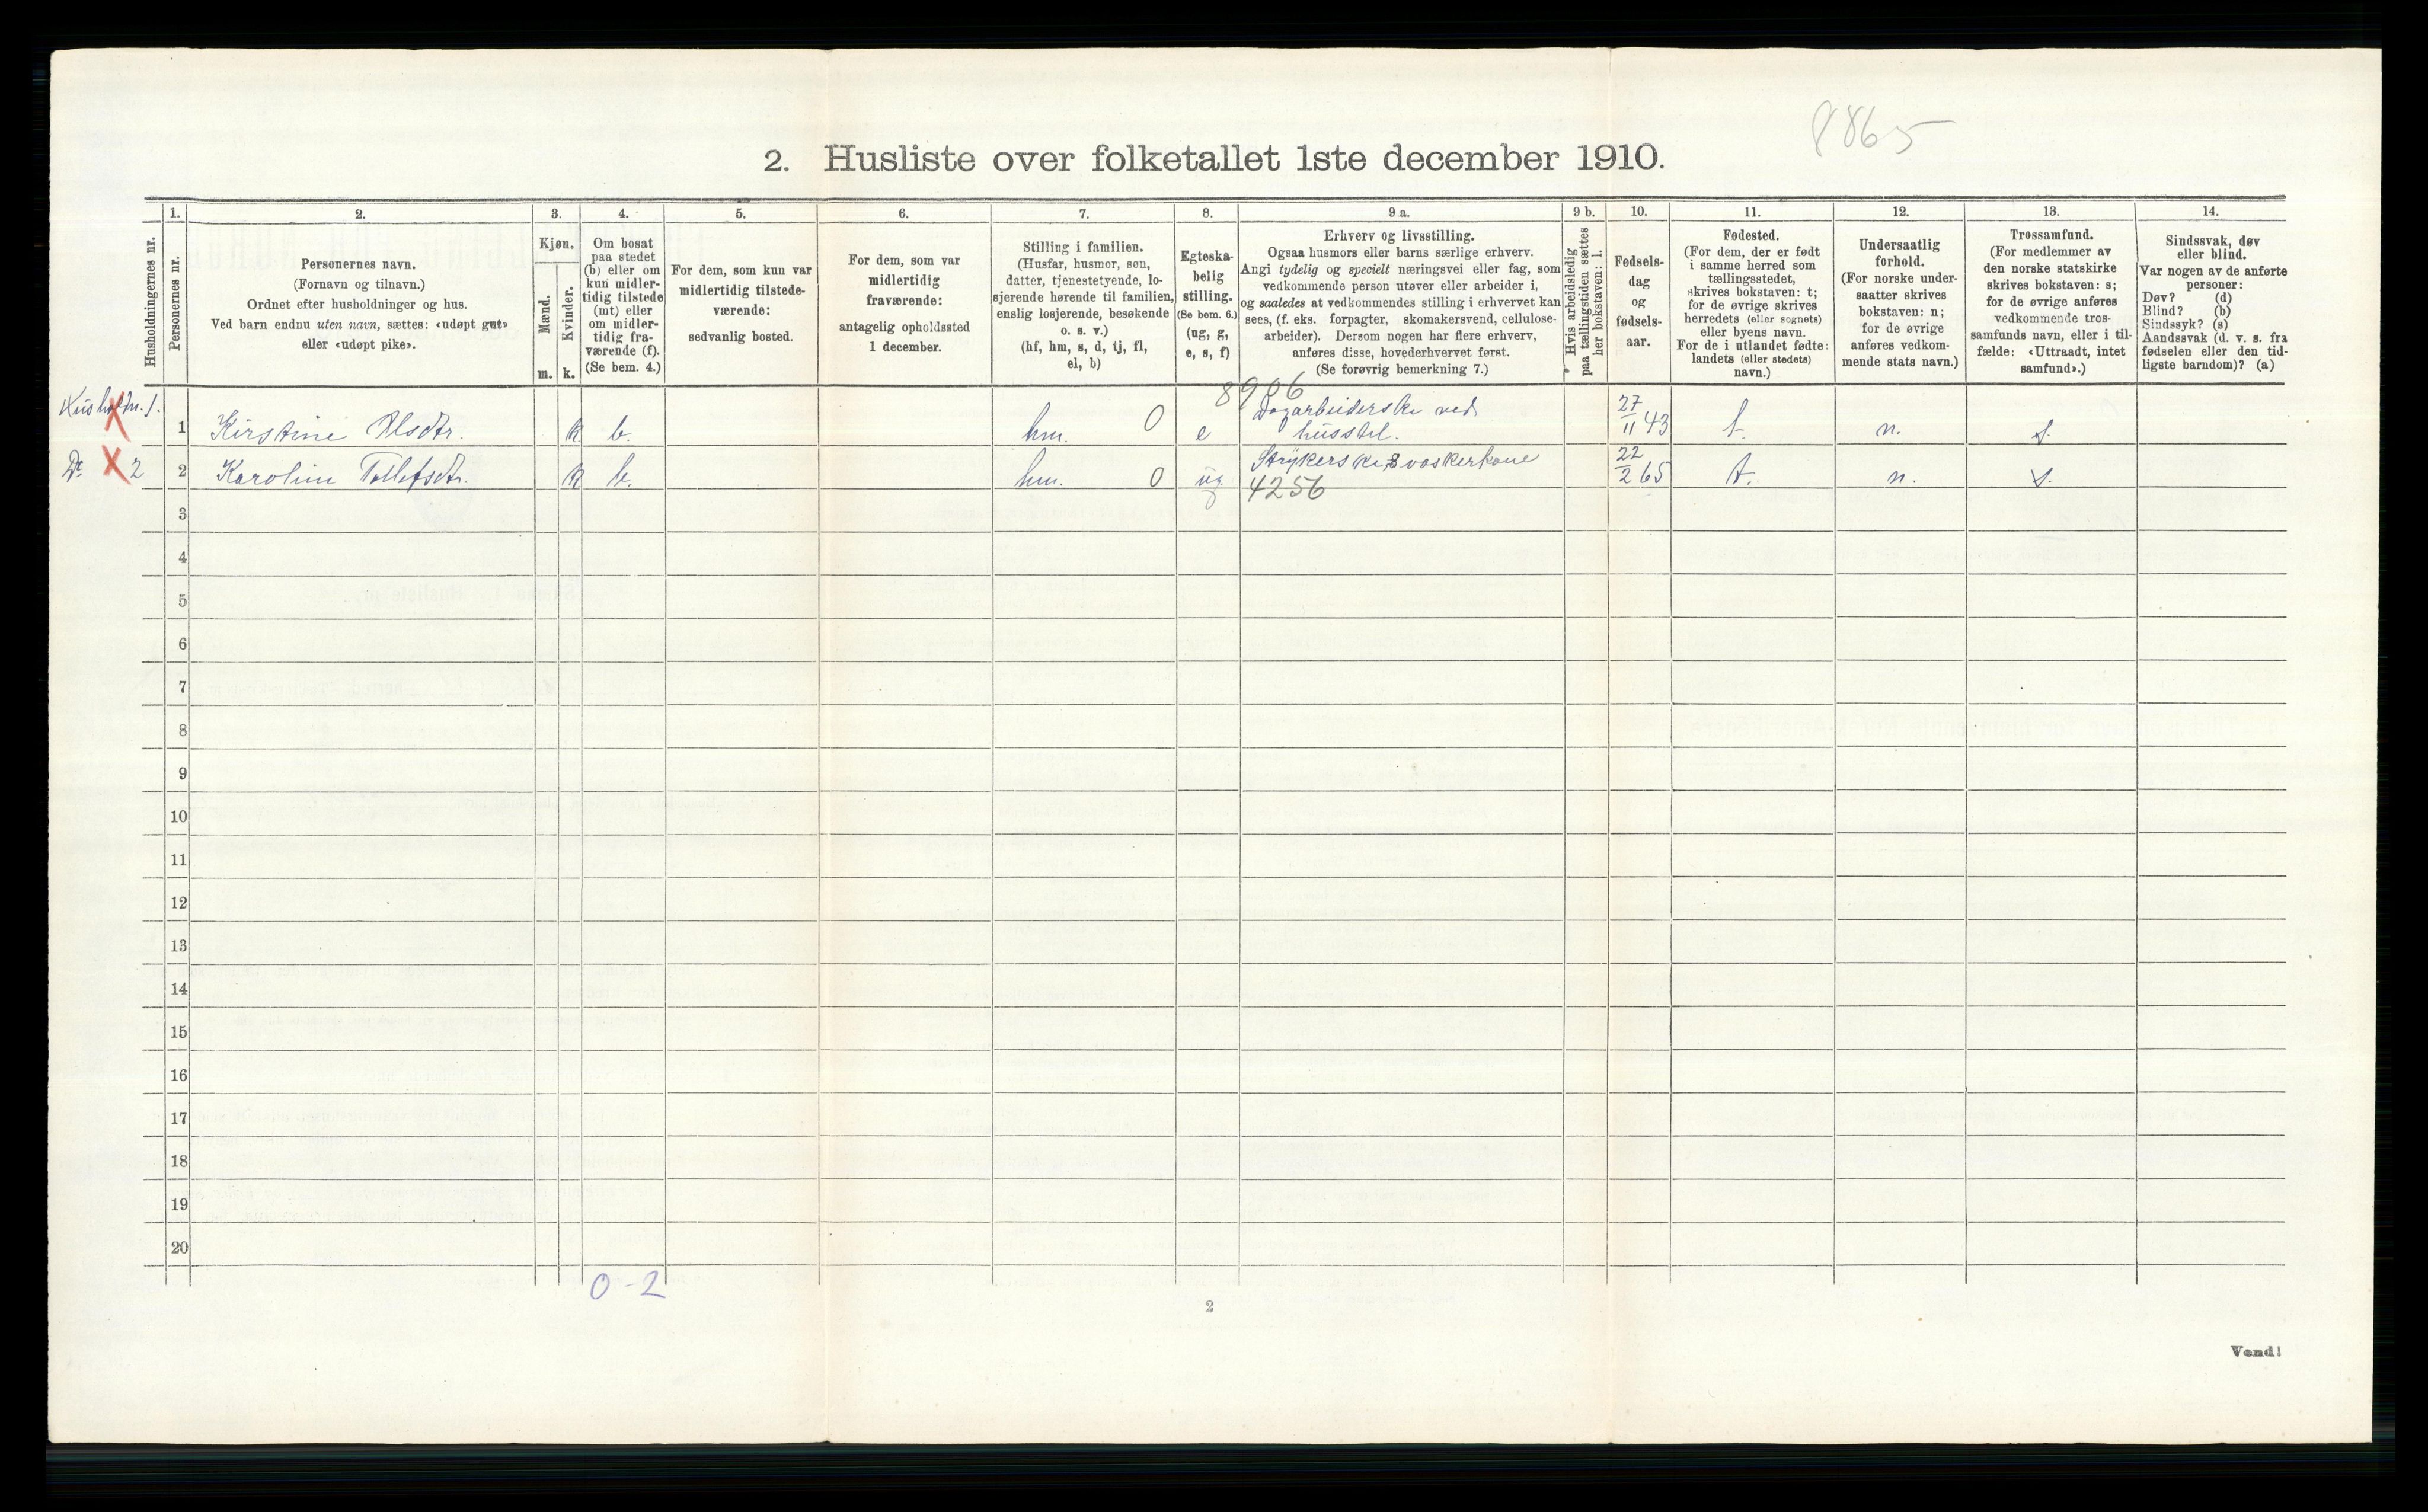 8865
2. Husliste over folketallet 1ste december 1910.
Husholdningernes nr.
1.
Personernes nr.
2.
Personernes navn.
(Fornavn og tilnavn.)
Ordnet efter husholdninger og hus.
Ved barn endnu uten navn, sættes: «udøpt gut»
eller «udøpt pike».
3.
Kjøn.
Mænd.
Kvinder.
m. k.
4.
Om bosat
paa stedet
(b) eller om
kun midler-
tidig tilstede
(mt) eller
om midler-
tidig fra-
værende (f).
(Se bem. 4.)
5.
For dem, som kun var
midlertidig tilstede-
værende:
sedvanlig bosted.
6.
For dem, som var
midlertidig
fraværende:
antagelig opholdssted
1 december.
7.
Stilling i familien.
(Husfar, husmor, søn,
datter, tjenestetyende, lo-
sjerende hørende til familien,
enslig losjerende, besøkende
o. s. v.)
(hf, hm, s, d, tj, fl,
el, b)
8.
Egteska-
belig
stilling.
(Se bem. 6.)
(ug, g,
e, s, f)
9 a.
Erhverv og livsstilling.
Ogsaa husmors eller barns særlige erhverv.
Angi tydelig og specielt næringsvei eller fag, som
vedkommende person utøver eller arbeider i,
og saaledes at vedkommendes stilling i erhvervet kan
sees, (f. eks. forpagter, skomakersvend, cellulose-
arbeider). Dersom nogen har flere erhverv,
anføres disse, hovederhvervet først.
(Se forøvrig bemerkning 7.)
9 b.
* Hvis arbeidsledig
paa tællingstiden sættes
her bokstaven: l.
10.
Fødsels-
dag
og
fødsels-
aar.
11.
Fødested.
(For dem, der er født
i samme herred som
tællingsstedet,
skrives bokstaven: t;
for de øvrige skrives
herredets (eller sognets)
eller byens navn.
For de i utlandet fødte:
landets (eller stedets)
navn.)
12.
Undersaatlig
forhold.
(For norske under-
saatter skrives
bokstaven: n;
for de øvrige
anføres vedkom-
mende stats navn.)
13.
Trossamfund.
(For medlemmer av
den norske statskirke
skrives bokstaven: s;
for de øvrige anføres
vedkommende tros-
samfunds navn, eller i til-
fælde: «Uttraadt, intet
samfund».)
14.
Sindssvak, døv
eller blind.
Var nogen av de anførte
personer:
Døv? (d)
Blind? (b)
Sindssyk? (s)
Aandssvak (d. v. s. fra
fødselen eller den tid-
ligste barndom)? (a)
8906
Husholdn. 1. 1 Kirstine Olsdtr. k b. hm. 0 e Dagarbeiderske ved husstel. 27/11 43 t. n. s.
Do 2 2 Karolin Tollefsdtr. k b. hm. 0 ug Strykerske & vaskerkone 22/2 65 t. n. s.
4256
3
4
5
6
7
8
9
10
11
12
13
14
15
16
17
18
19
20
0-2
2
Vend!